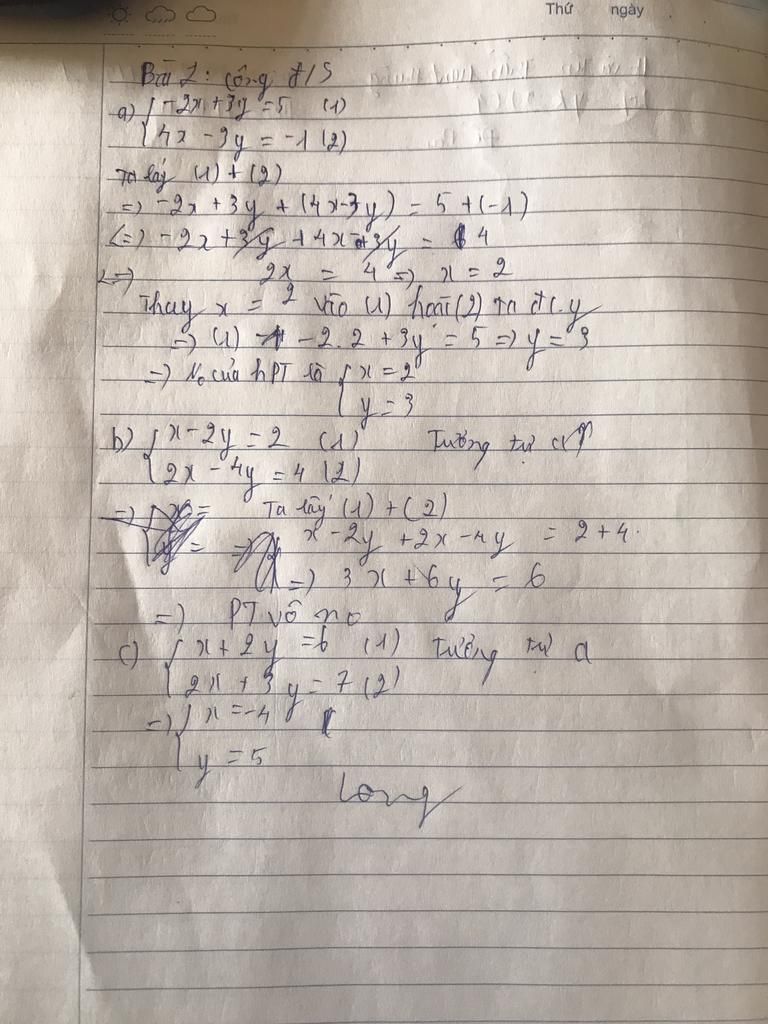 Thứ ngày
Bài 2: Cộng đ/S
a) { -2x + 3y = 5 (1)
4x - 3y = -1 (2)
Ta lấy (1) + (2)
=> -2x + 3y + (4x - 3y) = 5 + (-1)
<=> -2x + 3y + 4x - 3y = 4
<=> 2x = 4 => x = 2
Thay x = 2 vào (1) hoặc (2) ta đc y
=> (1) - 2.2 + 3y = 5 => y = 3
=> No của hPT là { x = 2
y = 3
b) { x - 2y = 2 (1) Tương tự a
2x - 4y = 4 (2)
=> Ta lấy (1) + (2)
=> x - 2y + 2x - 4y = 2 + 4.
=> 3x + 6y = 6
=> PT vô no
c) { x + 2y = 6 (1) Tương tự a
2x + 3y = 7 (2)
=> { x = -4
y = 5
Long